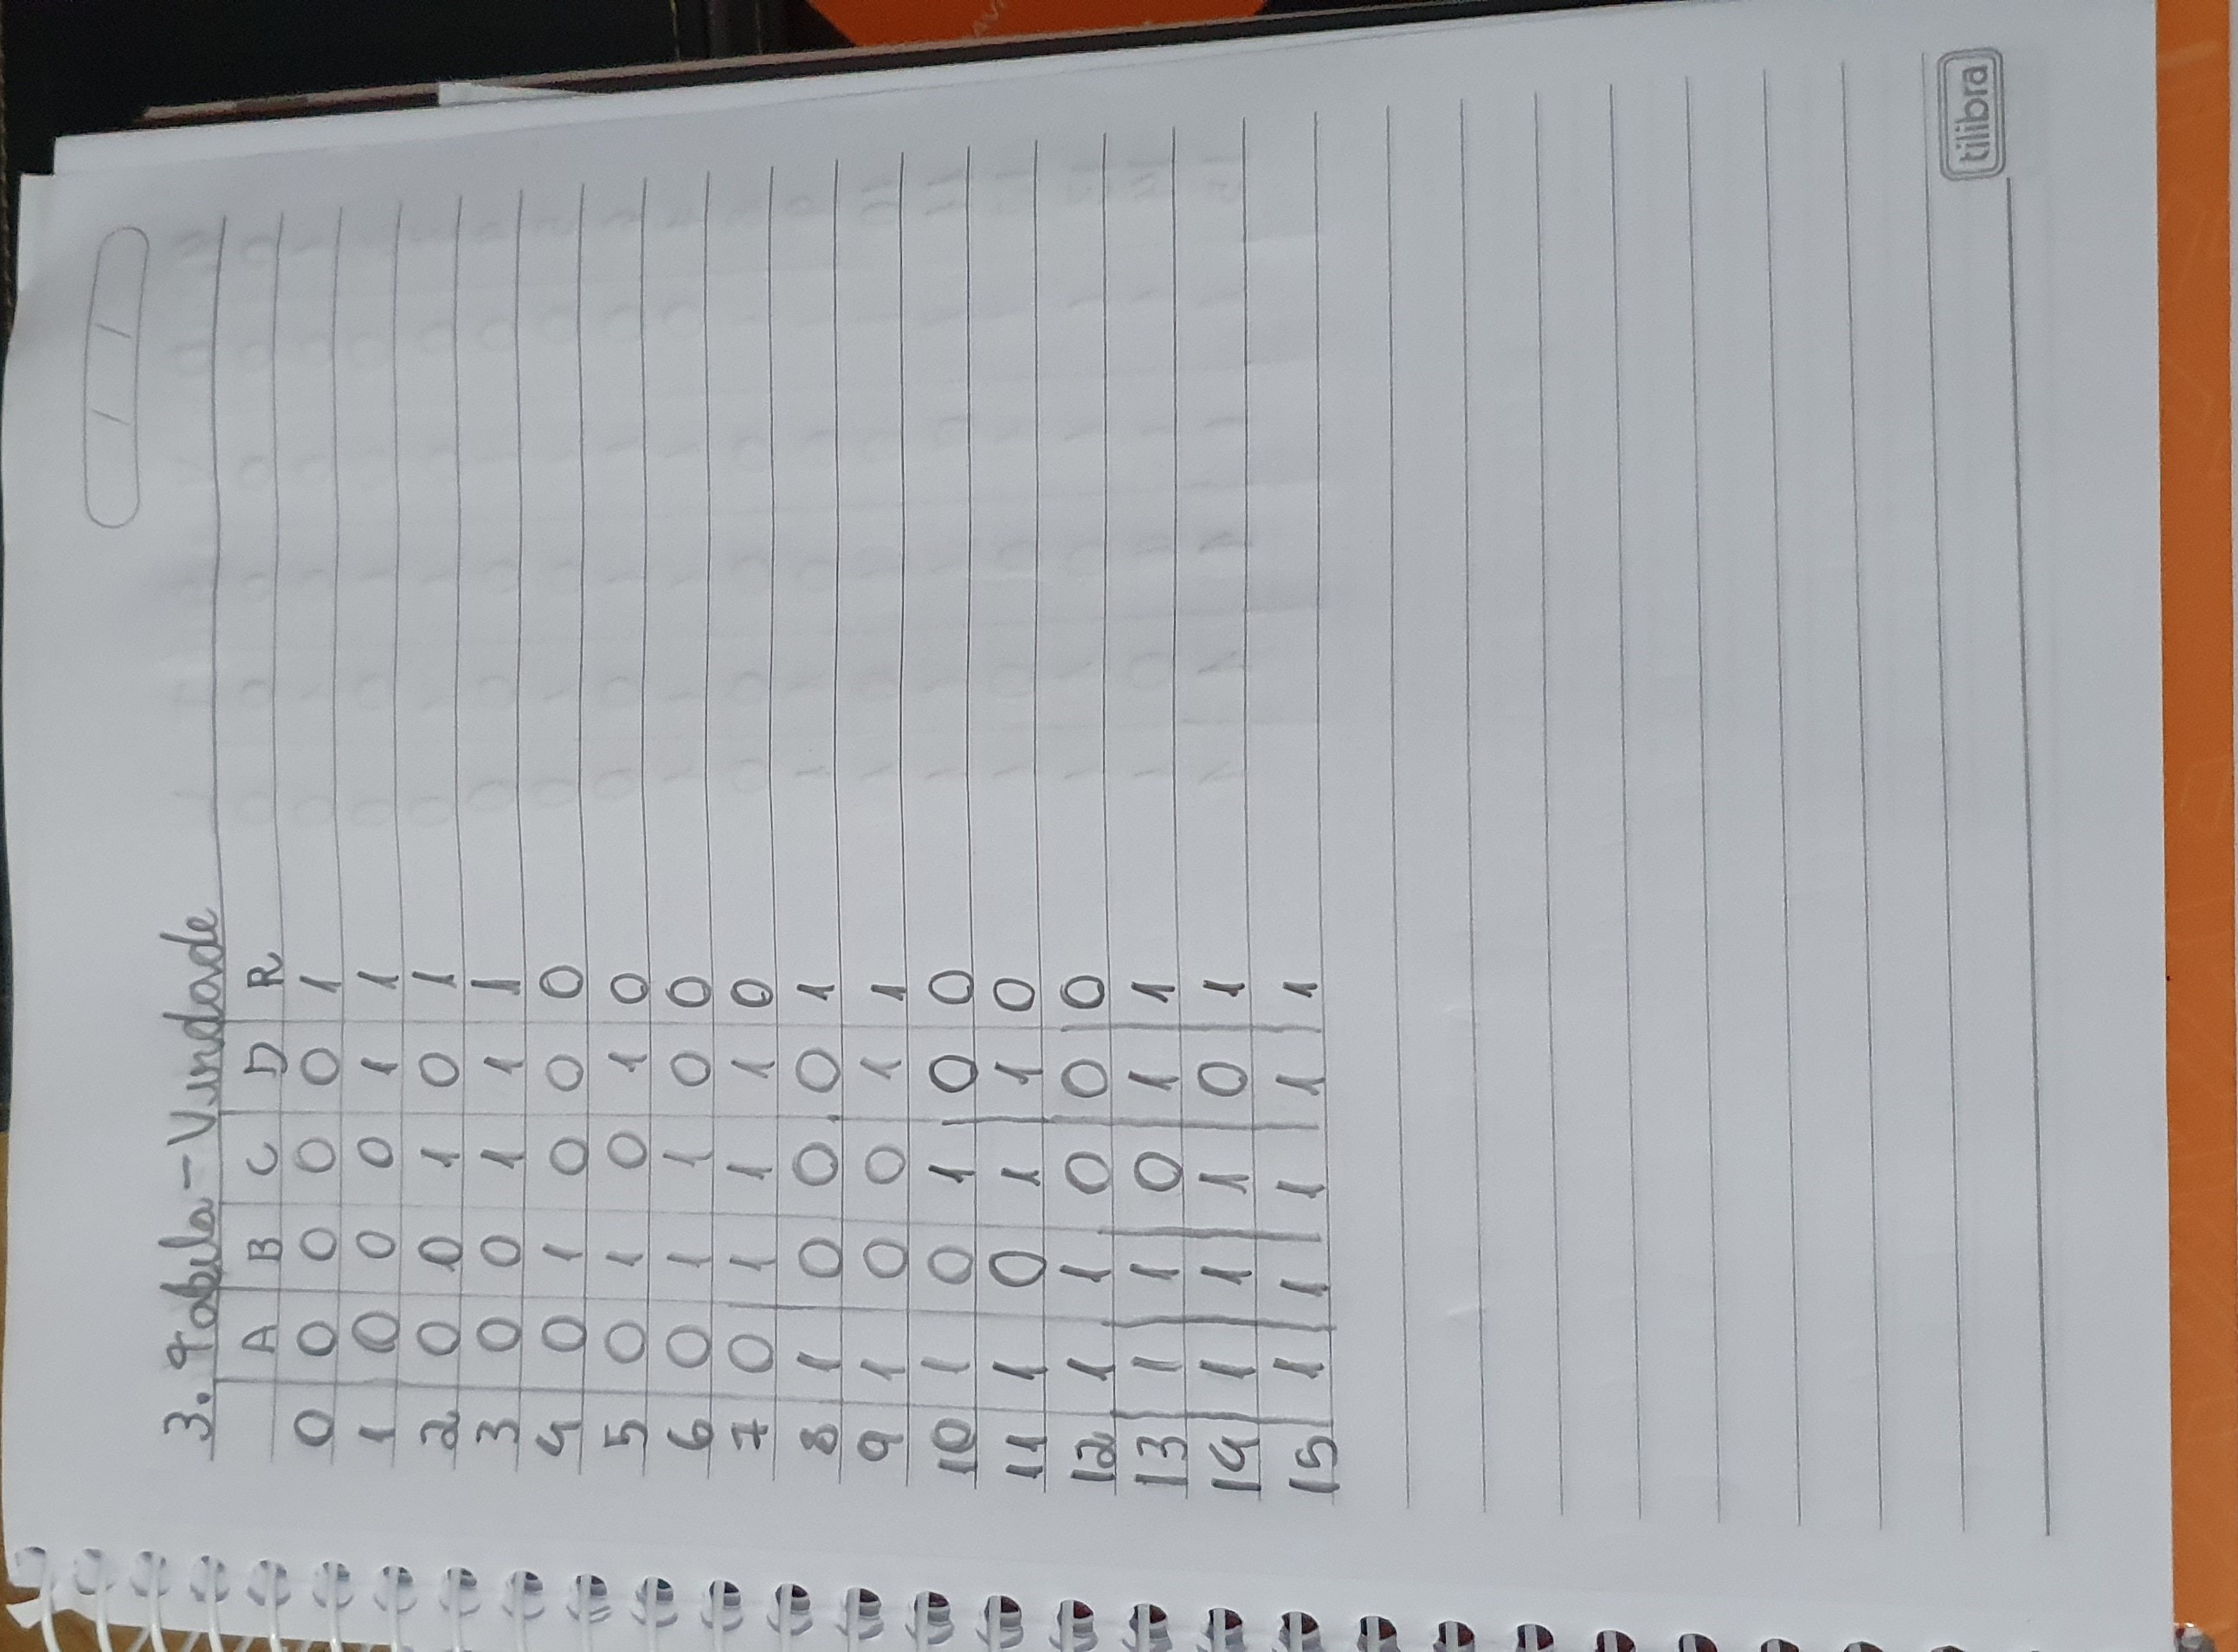 3. Tabela - Verdade
A B C D R
0 0 0 0 0 1
1 0 0 0 1 1
2 0 0 1 0 1
3 0 0 1 1 1
4 0 1 0 0 0
5 0 1 0 1 0
6 0 1 1 0 0
7 0 1 1 1 0
8 1 0 0 0 1
9 1 0 0 1 1
10 1 0 1 0 0
11 1 0 1 1 0
12 1 1 0 0 0
13 1 1 0 1 1
14 1 1 1 0 1
15 1 1 1 1 1
tilibra